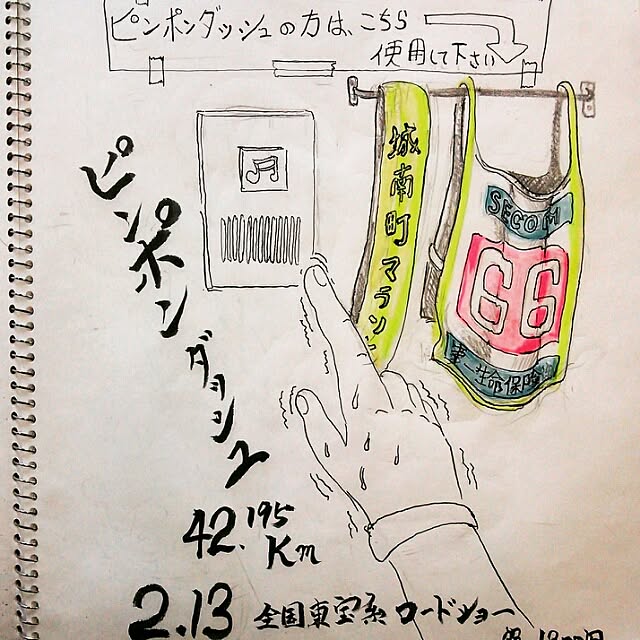 ピンポンダッシュの方は、こちら
使用して下さい
城南町マラソン
SECOM
66
第一生命保険
ピンポンダッシュ
42.195
Km
2.13 全国東宝系 ロードショー